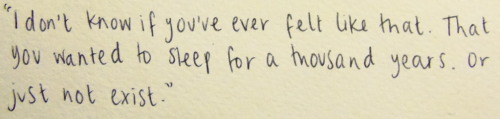 "I don't know if you've ever felt like that. That
you wanted to sleep for a thousand years. Or
just not exist."